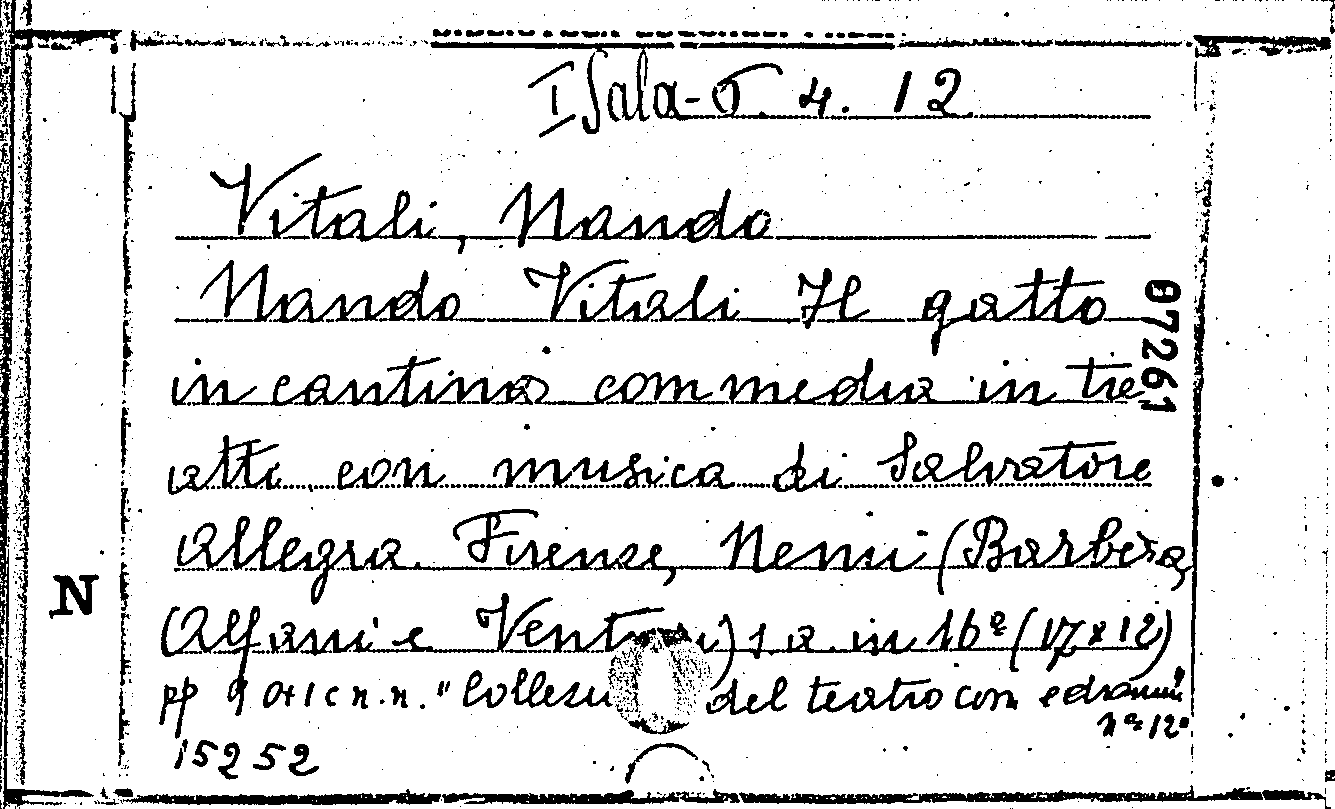 I Sala - 6. 4. 12
Vitali, Nando
Nando Vitali Il gatto
in cantina commedia in tre
atti con musica di Salvatore
Allegra. Firenze, Nemi (Barbera,
(Alfani e Venturi) s. a. in 16º (17x12)
pp 90+1 c n.n. " del teatro com e dramm"
nº 12º
15252
07261
N